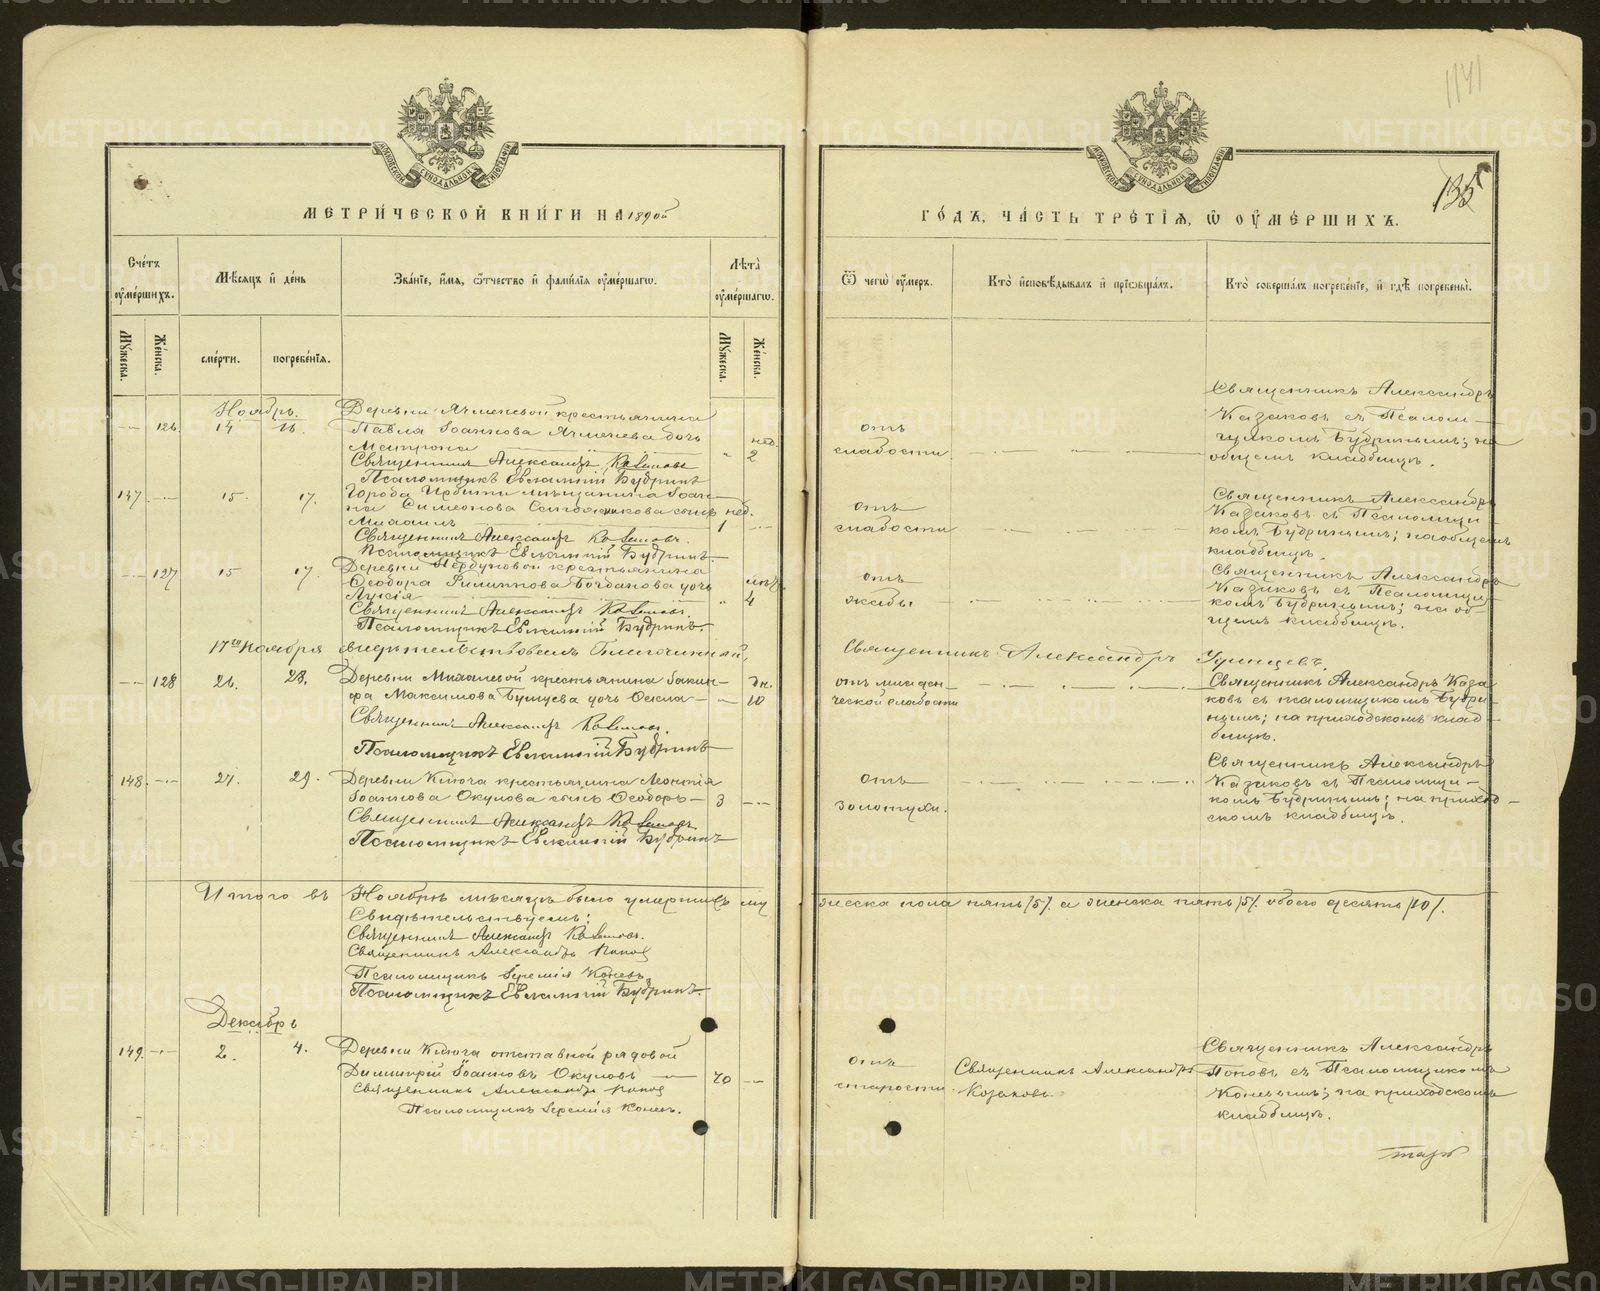 1141
135
МОСКОВСКОЙ СѴНОДАЛЬНОЙ ТИПОГРАФІИ
МОСКОВСКОЙ СѴНОДАЛЬНОЙ ТИПОГРАФІИ
МЕТРИ́ЧЕСКОЙ КНИ́ГИ НА 1890й
ГО́ДЪ, ЧА́СТЬ ТРЕ́ТІѦ, Ѡ҆ ОУ҆МЕ́РШИХЪ.
Сче́тъ оу҆ме́ршихъ.
Мѣ́сяцъ и҆ де́нь
Зва́нїе, и҆́мѧ, ѻ҆́тчество и҆ фами́лїѧ оу҆ме́ршагѡ.
Лѣ́та̀ оу҆ме́ршагѡ.
Ѿ чегѡ̀ оу҆́меръ.
Кто̀ и҆сповѣ́дывалъ и҆ прїѡбща́лъ.
Кто̀ соверша́лъ погребе́нїе, и҆ гдѣ̀ погребены̀.
Мꙋ́жеска.
Же́нска.
сме́рти.
погребе́нїѧ.
Мꙋ́жеска.
Же́нска.
Ноябрь.
126 14 16. Деревни Ячменевой крестьянина
Павла Іоаннова Ячменева дочь
Матрона нед. 2
Священникъ Александръ Казаковъ
Псаломщикъ Евлампій Будринъ
отъ
слабости
Священникъ Александръ
Казаковъ съ Псалом-
щикомъ Будринымъ; на
общемъ кладбищѣ.
147 15. 17. Города Ирбити мѣщанина Іоан-
на Симеонова сынъ нед.
Михаилъ 1
Священникъ Александръ Казаковъ.
Псаломщикъ Евлампій Будринъ.
отъ
слабости
Священникъ Александръ
Казаковъ съ Псаломщи-
комъ Будринымъ; на общемъ
кладбищѣ.
127 15 17. Деревни крестьянина
Ѳеодора Филиппова Богданова дочь мѣс.
Лукія 4
Священникъ Александръ Казаковъ.
Псаломщикъ Евлампій Будринъ.
отъ
жабы
Священникъ Александръ
Казаковъ съ Псаломщи-
комъ Будринымъ; на об-
щемъ кладбищѣ.
17го Ноября свидѣтельствовалъ Благочинный,
Священникъ Александръ
128 26. 28. Деревни Михалевой крестьянина Іакин-
фа Максимова дочь дн. 10
Священникъ Александръ Казаковъ.
Псаломщикъ Евлампій Будринъ
отъ младен-
ческой слабости
Священникъ Александръ Каза-
ковъ съ псаломщикомъ Будри-
нымъ; на приходскомъ клад-
бищѣ.
148. 27. 29. Деревни Ключа крестьянина Леонтія
Іоаннова Окулова сынъ Ѳеодоръ 3
Священникъ Александръ Казаковъ
Псаломщикъ Евлампій Будринъ
отъ
золотухи.
Священникъ Александръ
Казаковъ съ Псаломщи-
комъ Будринымъ; на приход-
скомъ кладбищѣ.
Итого въ Ноябрѣ мѣсяцѣ было умершихъ му
жеска пола пять /5/. а женска пять /5/. обоего десять /10/.
Свидѣтельствуемъ:
Священникъ Александръ Казаковъ.
Священникъ Александръ Поповъ
Псаломщикъ Іеремія Коневъ
Псаломщикъ Евлампій Будринъ.
Декабрь
149. 2. 4. Деревни Ключа отставной рядовой
Димитрій Іоанновъ Окуловъ 70
Священникъ Александръ Поповъ
Псаломщикъ Іеремія Коневъ.
отъ
старости
Священникъ Александръ
Казаковъ
Священникъ Александръ
Поповъ съ Псаломщикомъ
Коневымъ; на приходскомъ
кладбищѣ.
METRIKI.GASO-URAL.RU